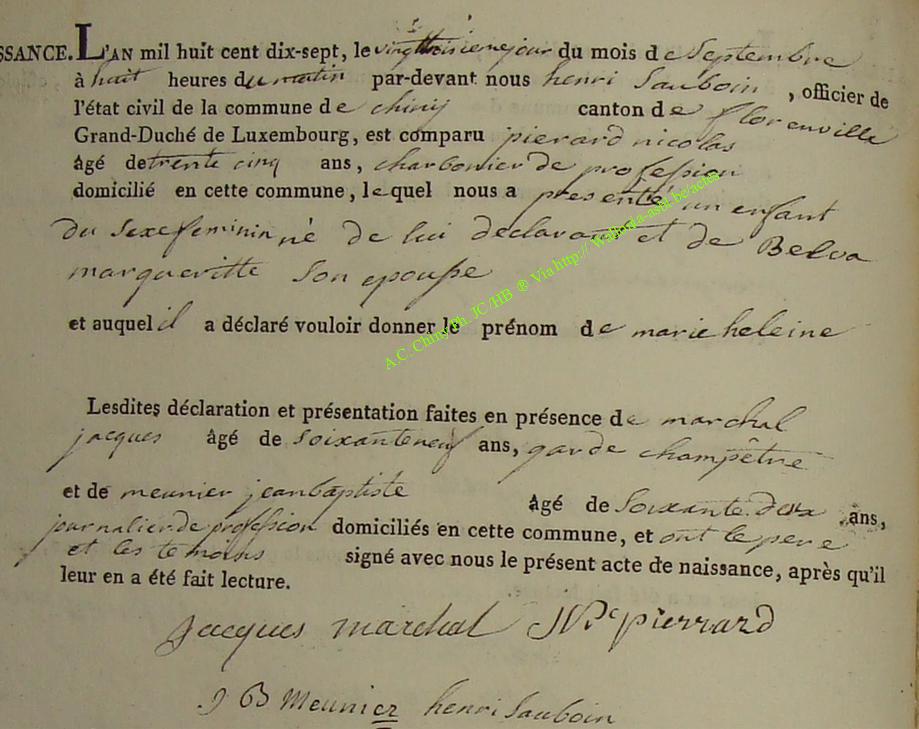 SSANCE. L'AN mil huit cent dix-sept, le vingttroisieme jour du mois de Septembre
à huit heures du matin par-devant nous henri Sauboin, officier de
l'état civil de la commune de chiny canton de florenville
Grand-Duché de Luxembourg, est comparu pierard nicolas
âgé de trente cinq ans, charbonier de profession
domicilié en cette commune, lequel nous a presenté un enfant
du Sexe feminin né de lui declarant et de Belva
margueritte Son epouse
et auquel il a déclaré vouloir donner le prénom de marie heleine
Lesdites déclaration et présentation faites en présence de marchal
jacques âgé de Soixante neuf ans, garde champêtre
et de meunier jean baptiste âgé de Soixante deux ans,
journalier de profession domiciliés en cette commune, et ont le pere
et les temoins signé avec nous le présent acte de naissance, après qu'il
leur en a été fait lecture.
Jacques marchal N. Pierrard
J B Meunier henri Sauboin
A.C. Chiny Ph. JC/HB ® Via http:// Wallonia-asbl.be/actes